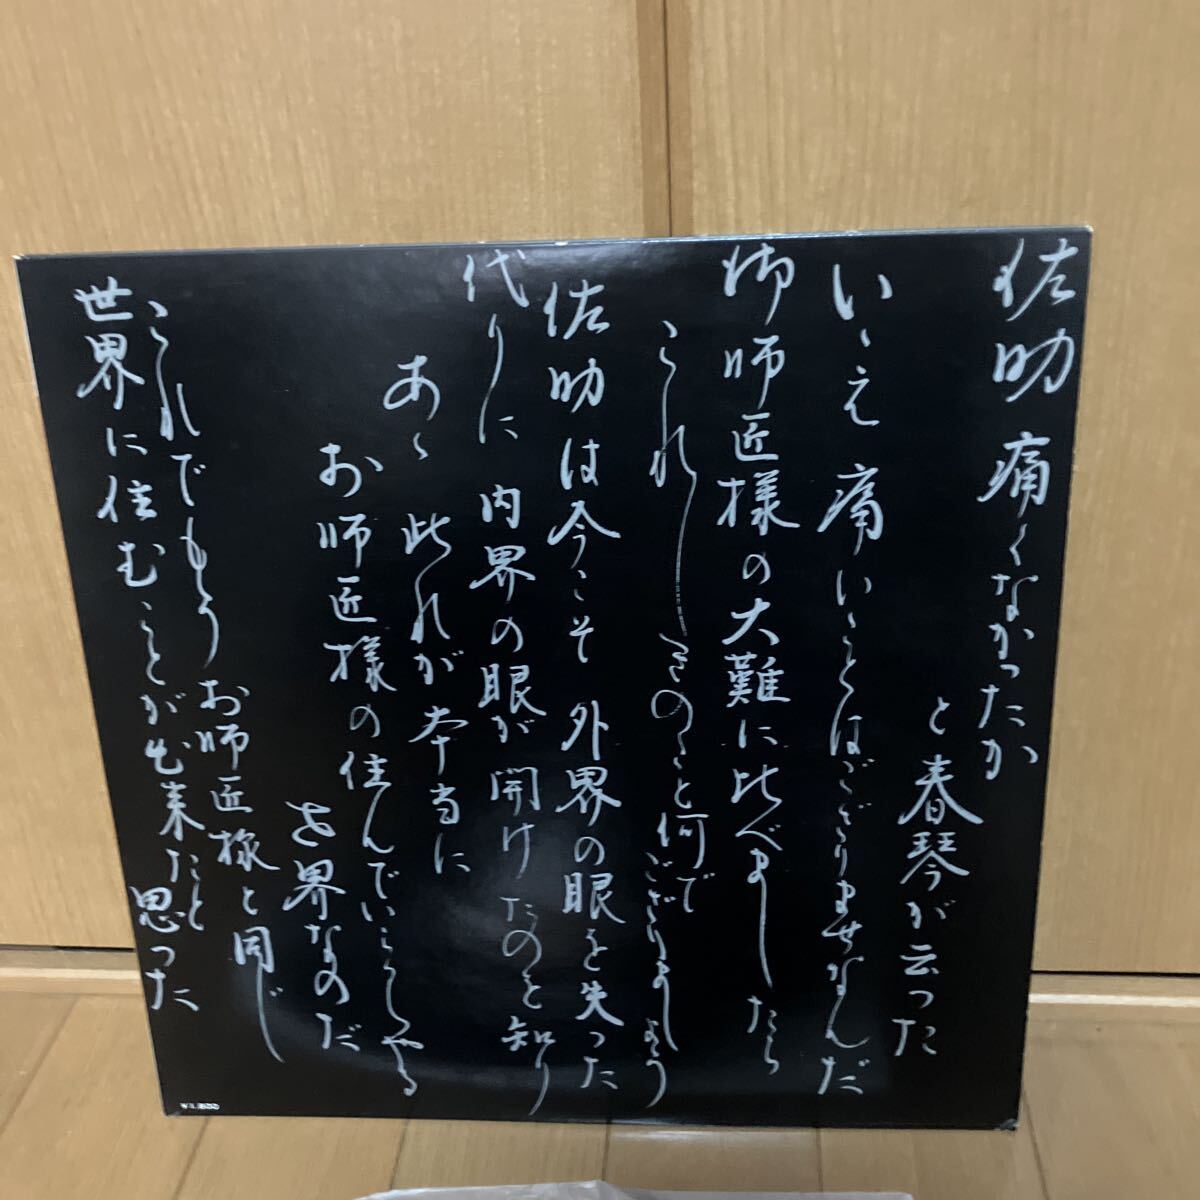 佐助 痛くなかったか
と春琴が云った
いゝえ 痛いことはござりませなんだ
御師匠様の大難に比べましたら
これしきのこと何で
ござりましょう
佐助は今こそ 外界の眼を失った
代りに 内界の眼が 開けたのを知り
あゝ 此れが 本当に
お師匠様の住んでいらっしやる
世界なのだ
これでもう お師匠様と同じ
世界に住むことが出来たと
思った
¥1,800